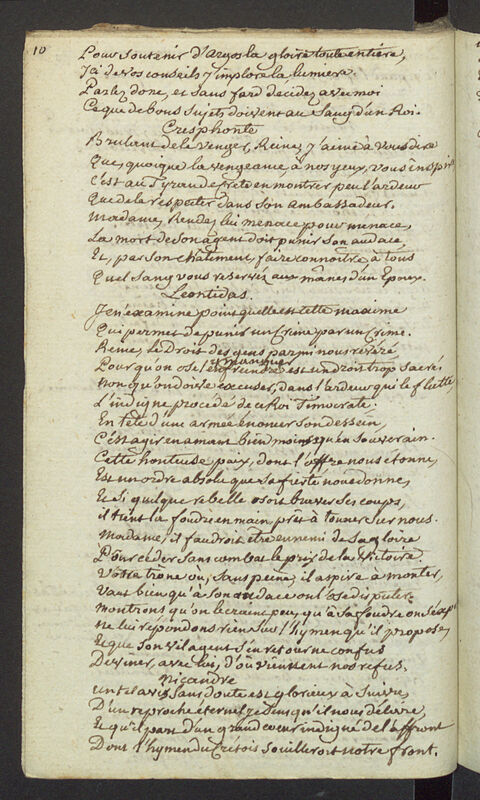 10
Pour soutenir d'Argos la gloire toute entiere,
Ici de vos conseils j'implore la lumiere.
Parlez donc, et sans fard decidez avec moi
Ce que de bons sujets doivent au Sang d'un Roi.
Cresphonte
Brulant de la venger, Reine, j'aime à vous dire
Que, quoique la vengeance, à nos yeux, vous inspire
C'est au Tyran de Crete en montrer peu l'ardeur
Que de la respecter dans son ambassadeur.
Madame, Rendez lui menace pour menace,
La mort de son agent doit punir son audace
Et, par son chatiment, faire connoître à tous
Quel sang vous reservez aux mânes d'un Epoux.
Leontidas.
Je n'examine point quelle est cette maxime
Qui permet de punir un Crime par un Crime.
Reine, le Droit des gens parmi nous reveré
Pour qu'on ose l'enfreindre est un droit trop sacré
y manquer
non qu'on doive excuser, dans l'ardeur qui le flatte,
L'indigne procédé de ce Roi Timocrate.
En tête d'une armée enoncer son dessein,
C'est agir en amant bien moins qu'en souverain.
Cette honteuse paix, dont l'offre nous etonne,
Est un ordre absolu que sa fierté nous donne,
Et si quelque rebelle osoit braver ses coups,
il tient la foudre en main, prêt à tonner sur nous.
Madame, il faudroit être ennemi de sa gloire
Pour céder sans combat le prix de la Victoire.
Votre trône ou, sans peine, il aspire à monter,
Vaut bien qu'à son audace on l'ose disputer.
montrons qu'on le craint peu, qu'à sa foudre on s'expose
ne lui répondons rien sur l'hymen qu'il propose,
Et que son vil agent s'en retourne confus
Deviner, avec lui, d'où viennent nos refus.
Nicandre
un tel avis sans doute est glorieux à suivre,
D'un reproche eternel je sens qu'il nous délivre,
Et qu'il part d'un grand coeur indigné de l'affront
Dont l'hymen du Cretois souilleroit notre front.